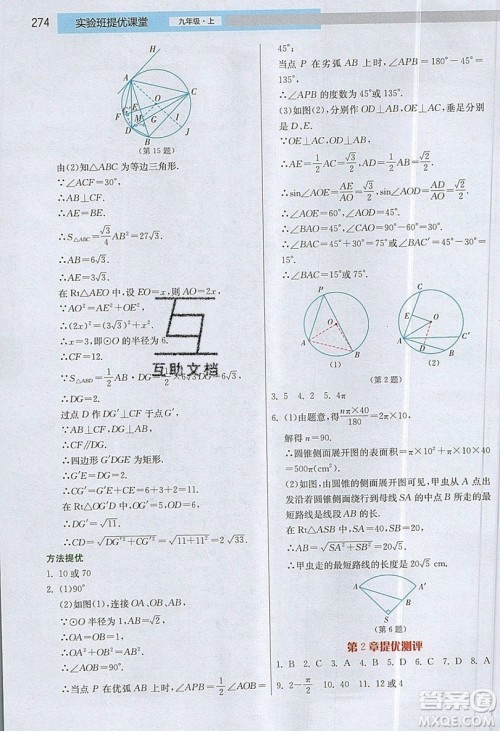 274 实验班提优课堂 九年级·上
A
O
E
F
C
D
M
G
B
I
J
(第15题)
由(2)知△ABC为等边三角形.
∴∠ACF=30°,
∴AB⊥CF.
∴AE=BE.
∵S△ABC=√3/4 AB²=27√3.
∴AB=6√3.
∴AE=3√3.
在Rt△AEO中,设EO=x,则AO=2x,
∵AO²=AE²+OE²,
∴(2x)²=(3√3)²+x².
∴x=3,即⊙O的半径为6.
∴CF=12.
∵S△ABD=1/2 AB·DG=1/2×6√3 DG=6√3,
∴DG=2.
过点D作DG′⊥CF于点G′.
∵AB⊥CF,DG⊥AB,
∴CF∥DG.
∴四边形G′DGE为矩形.
∴G′E=DG=2.
∴CG′=G′E+CE=6+3+2=11.
∴DG′=√11.
∴CD=√(DG′²+CG′²)=√(11+11²)=2√33.
方法提优
1. 10或70
2. (1)90°
(2)如图(1),连接OA,OB,AB,
∵⊙O半径为1,
∴OA=OB=1.
∵AB=√2,
∴OA²+OB²=AB².
∴∠AOB=90°.
当点P在优弧AB上时,∠APB=
45°;
当点P在劣弧AB上时,∠APB=180°-45°=
135°.
∴∠APB的度数为45°或135°.
(3)如图(2),分别作OD⊥AC,OE⊥AB,垂足分别
是D、E.
∴AE=1/2 AB=√3/2,AD=1/2 AC=√2/2.
∵sin∠AOE=AE/AO=√3/2,sin∠AOD=AD/AO=√2/2.
∴∠AOE=60°,∠AOD=45°.
∴∠BAO=30°,∠CAO=45°.
∴∠BAC=45°+30°=75°或∠BAC′=45°-30°=
15°.
∴∠BAC=75°或15°.
P
O
A
B
(1)
C
E
O
C′
A
D
B
(2)
(第2题)
3. 5 4. 2 5. 4π
6. (1)由题意,得 nπ×40/180=2π×10.
解得n=90.
∴圆锥侧面展开图的表面积=π×10²+π×10×40=
500π(cm²).
(2)如图,由圆锥的侧面展开图可见,甲虫从A点出
发沿着圆锥侧面绕行到母线SA的中点B所走的最
短路线是线段AB的长.
在Rt△ASB中,SA=40,SB=20,
∴AB=√(SA²+SB²)=20√5(cm).
∴甲虫走的最短路线的长度是20√5 cm.
A
B
S
(第6题)
第2章提优测评
1. B 2. B 3. C 4. A 5. B 6. D 7. D 8. A
9. 2-π/2 10. 40 11. 12或4
互助文档
作业精灵
MXQE.COM